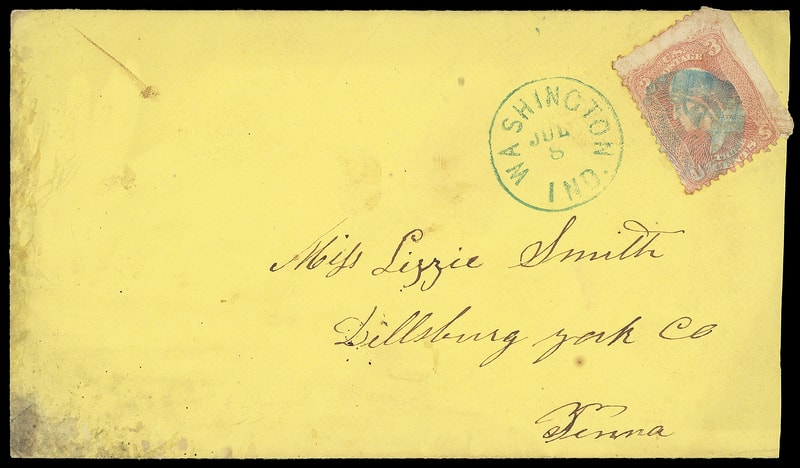 WASHINGTON. IND.
JUL
8
U.S. POSTAGE
3 3
Miss Lizzie Smith
Dillsburg york Co
Penna